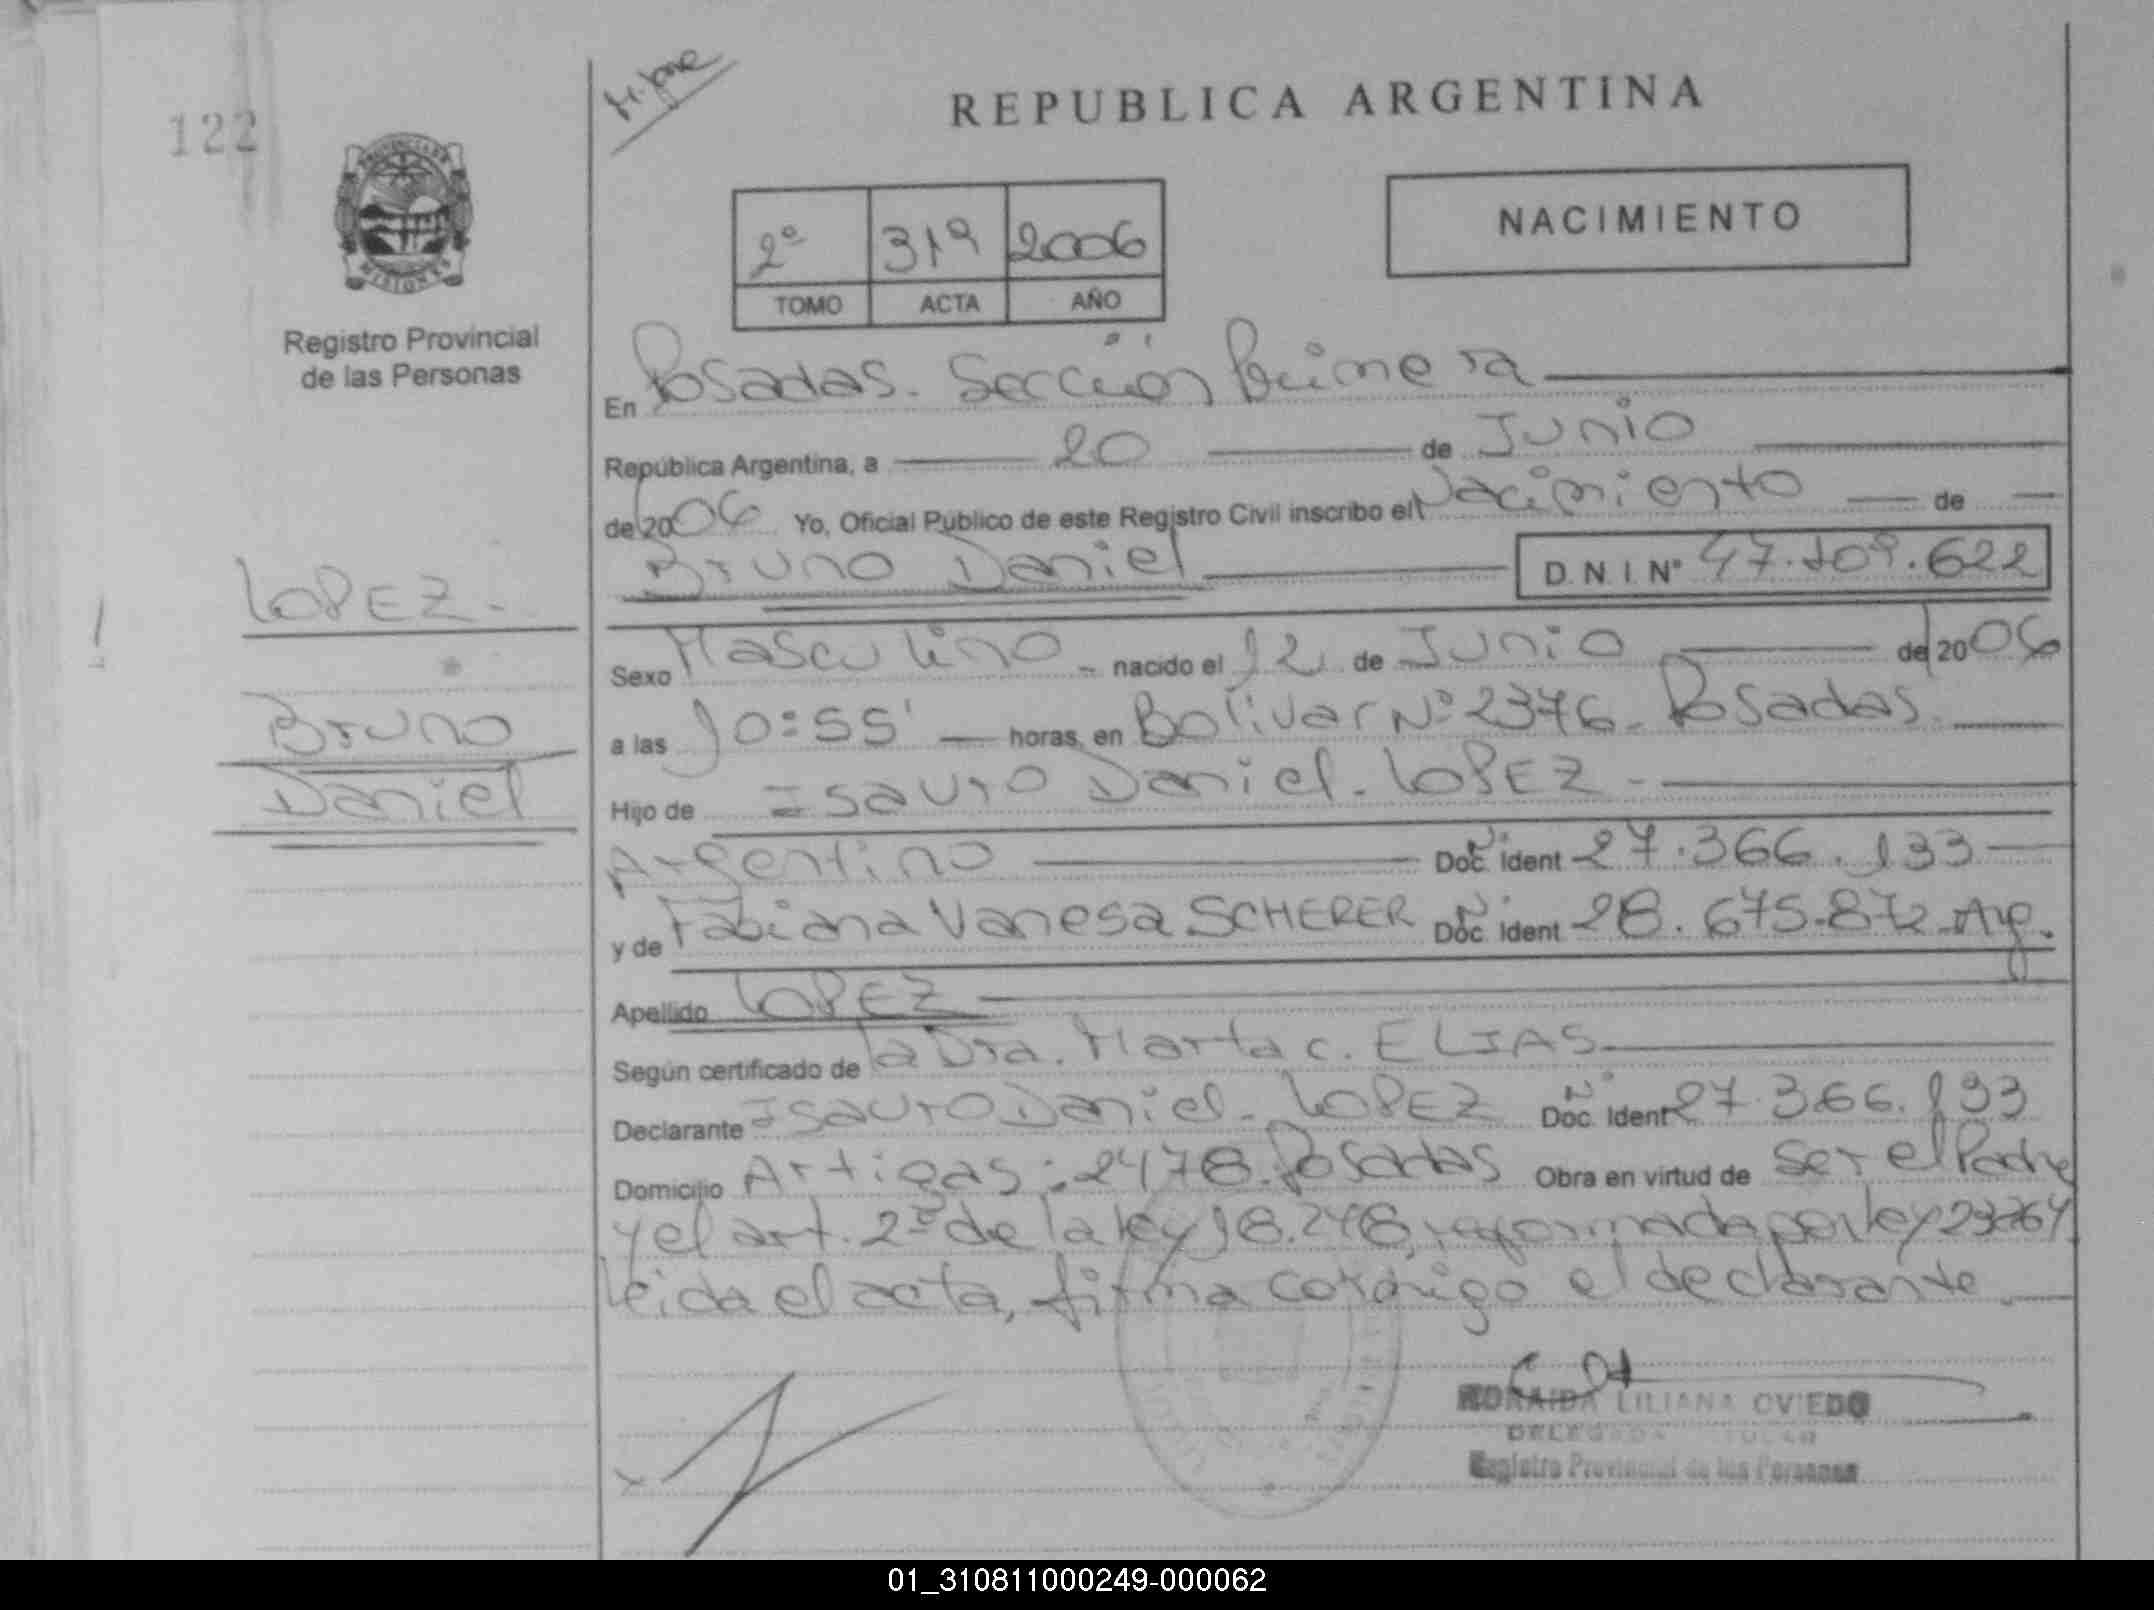 122
REPUBLICA ARGENTINA
PROVINCIA DE
MISIONES
Registro Provincial
de las Personas
NACIMIENTO
2º 319 2006
TOMO ACTA AÑO
En Posadas. Sección Primera
República Argentina, a 20 de Junio
de 2006 Yo, Oficial Público de este Registro Civil inscribo el Nacimiento de
Bruno Daniel D.N.I. Nº 47.109.622
LOPEZ.
Bruno
Daniel
Sexo Masculino nacido el 12 de Junio de 2006
a las 10:55' horas, en Bolivar Nº 2376. Posadas.
Hijo de Isauro Daniel. LOPEZ
Argentino Doc. Ident Nº 27.366.133
y de Fabiana Vanesa SCHERER Doc. Ident Nº 28.675.872 Arg.
Apellido LOPEZ
Según certificado de la Dra. Marta C. ELIAS
Declarante Isauro Daniel. LOPEZ Doc. Ident Nº 27.366.133
Domicilio Artigas: 2478. Posadas Obra en virtud de ser el Padre
y el art. 2º de la ley 18.248, reformada por ley 23264
leida el acta, firma conmigo el declarante.
LILIANA OVIEDO
DELEGADA TITULAR
Registro Provincial de las Personas
01_310811000249-000062